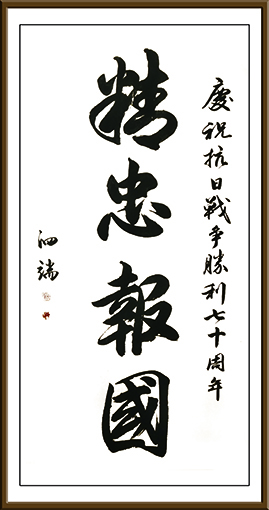 慶祝抗日戰爭勝利七十周年
精忠報國
泗端